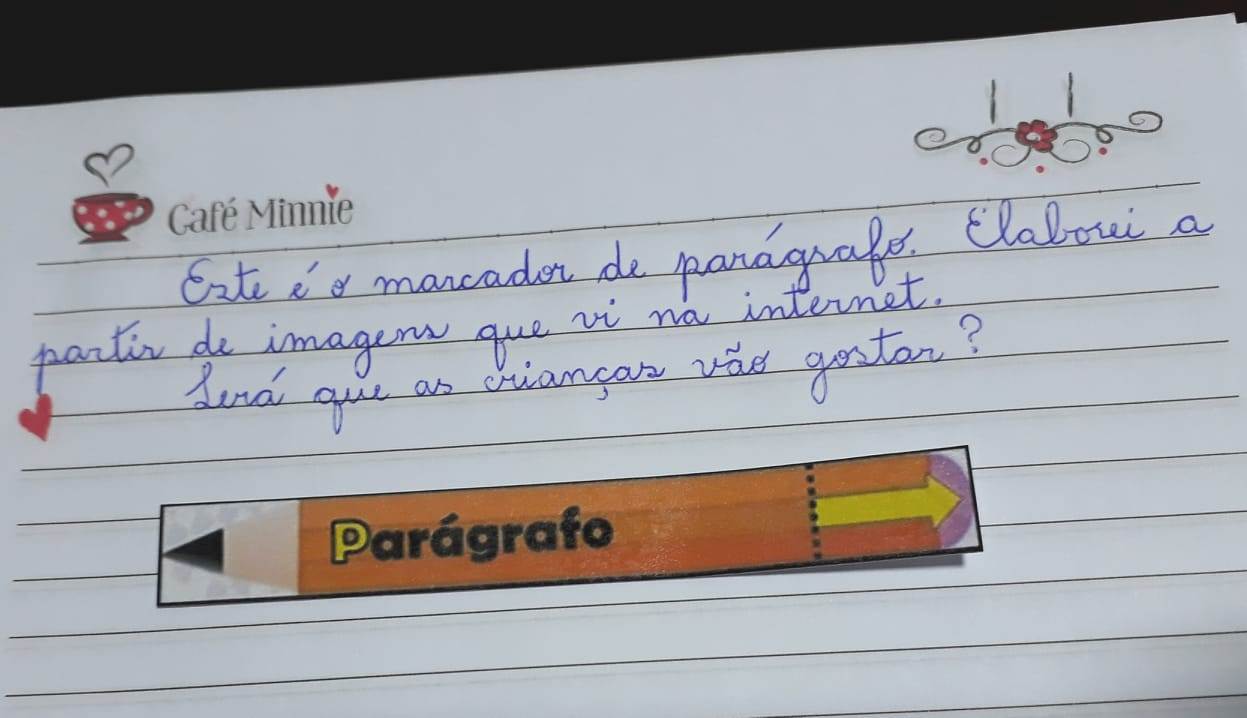 Café Minnie
Este é o marcador de parágrafo. Elaborei a
partir de imagens que vi na internet.
Será que as crianças vão gostar?
Parágrafo